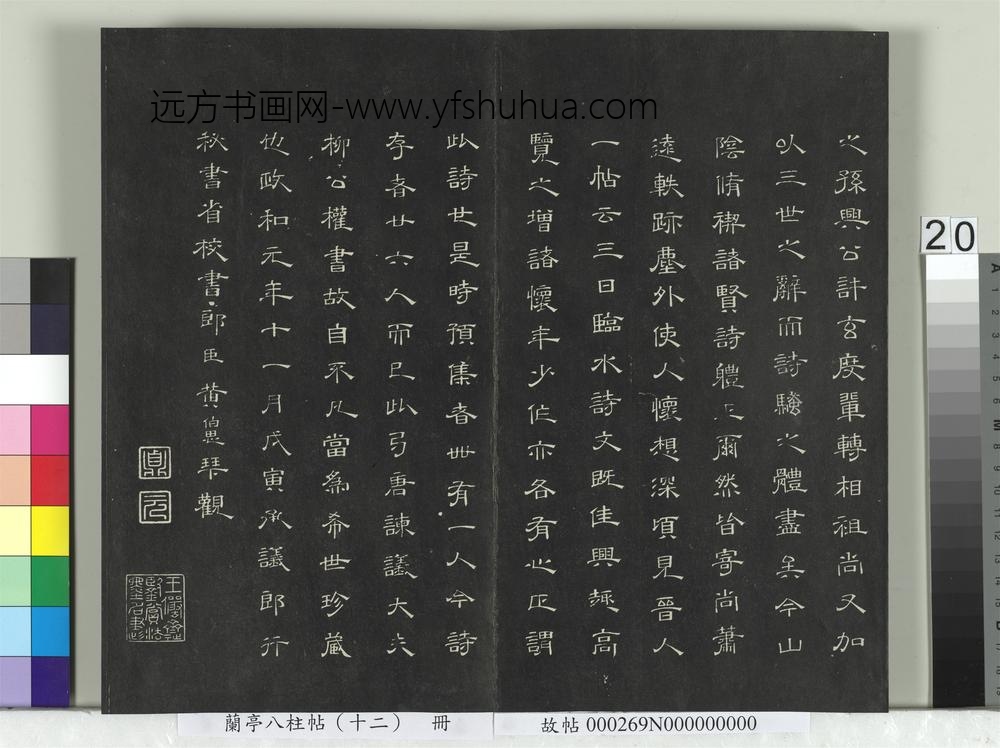 远方书画网-www.yfshuhua.com
之孫興公許玄度輩轉相祖尚又加
以三世之辭而詩騷之體盡矣今山
陰脩禊諸賢詩體正爾然皆寄尚蕭
遠軼跡塵外使人懷想深頃見晉人
一帖云三日臨水詩文既佳興趣高
覽之增諸懷年少作亦各有心正謂
此詩也是時預集者卌有一人今詩
存者廿六人而已此弓唐諫議大夫
柳公權書故自不凡當為希世珍藏
也政和元年十一月戊寅承議郎行
秘書省校書郎臣黃伯思 觀
王儼齋
鑒賞法
書名畫
20
蘭亭八柱帖(十二) 冊
故帖 000269N000000000